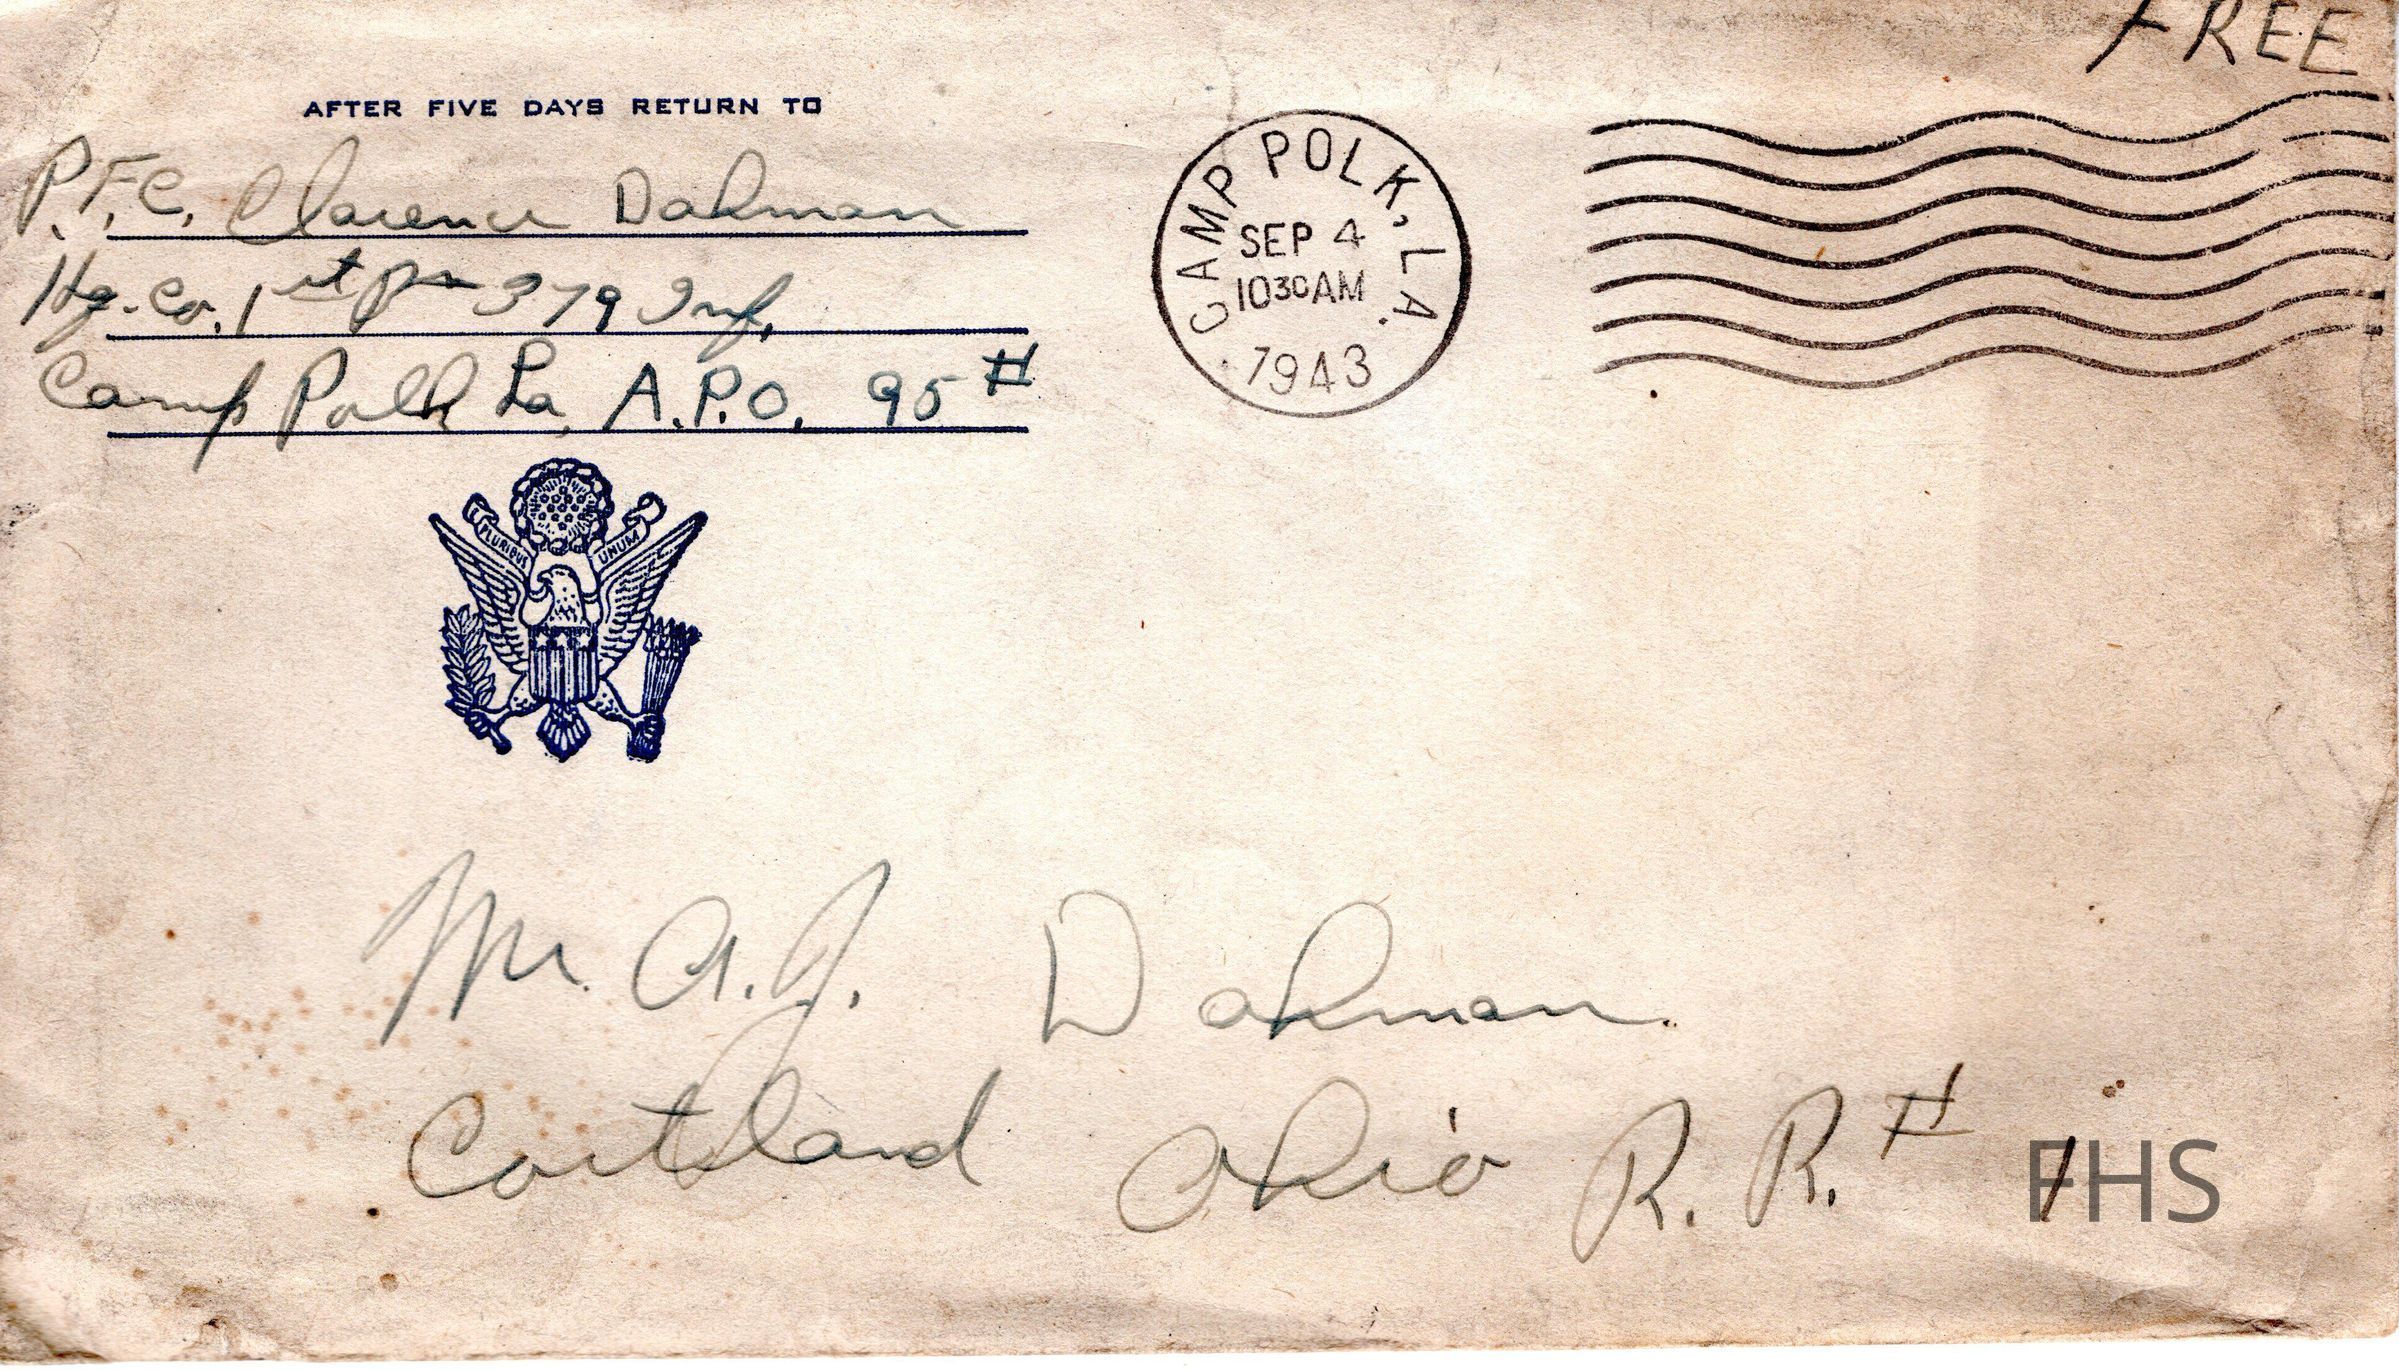 FREE
AFTER FIVE DAYS RETURN TO
P.F.C. Clarence Dahman
Hq. Co. 1st Bn 379 Inf.
Camp Polk La, A.P.O. 95 #
CAMP POLK, LA.
SEP 4
1030AM
1943
PLURIBUS UNUM
Mr. A. J. Dahman.
Cortland Ohio R. R. # 1
FHS